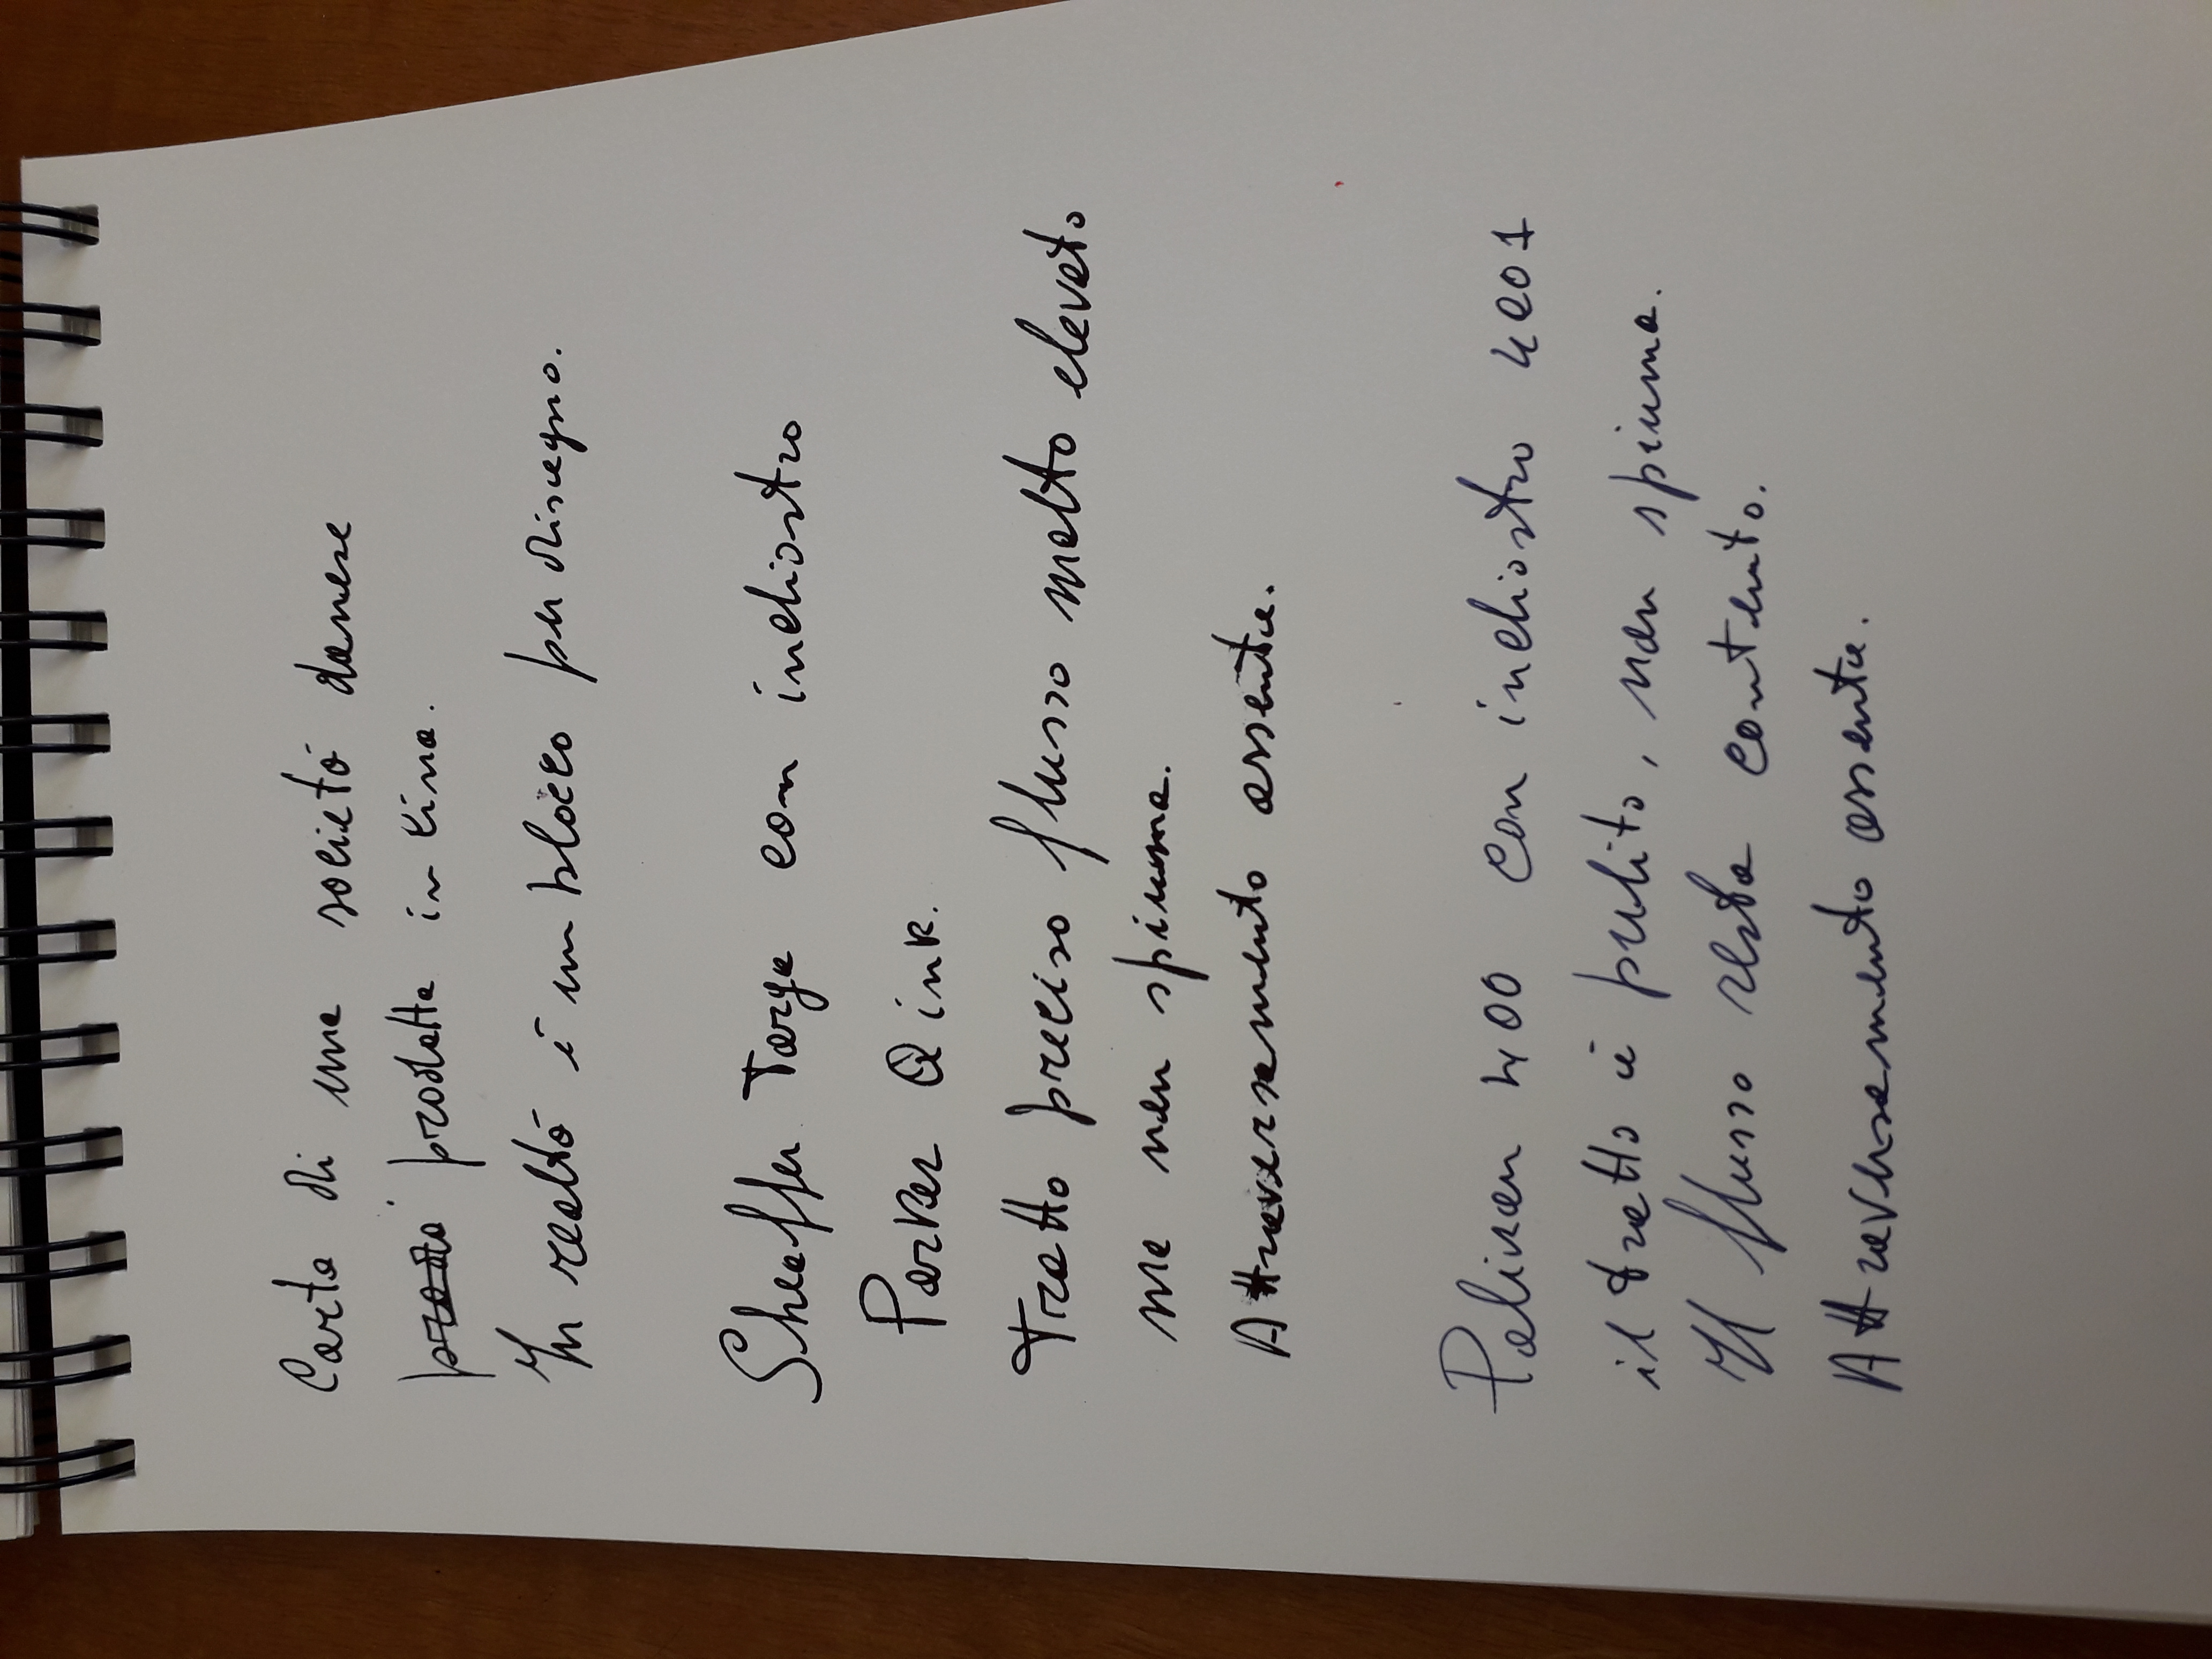 Carta di una società danese
prodotta in Cina.
In realtà è un blocco per disegno.
Sheaffer Targa con inchiostro
Parker Qink.
Tratto preciso flusso molto elevato
ma non spiuma.
Attraversamento assente.
Pelikan 400 con inchiostro 4001
il tratto è pulito, non spiuma.
Il flusso resta contenuto.
Attraversamento assente.